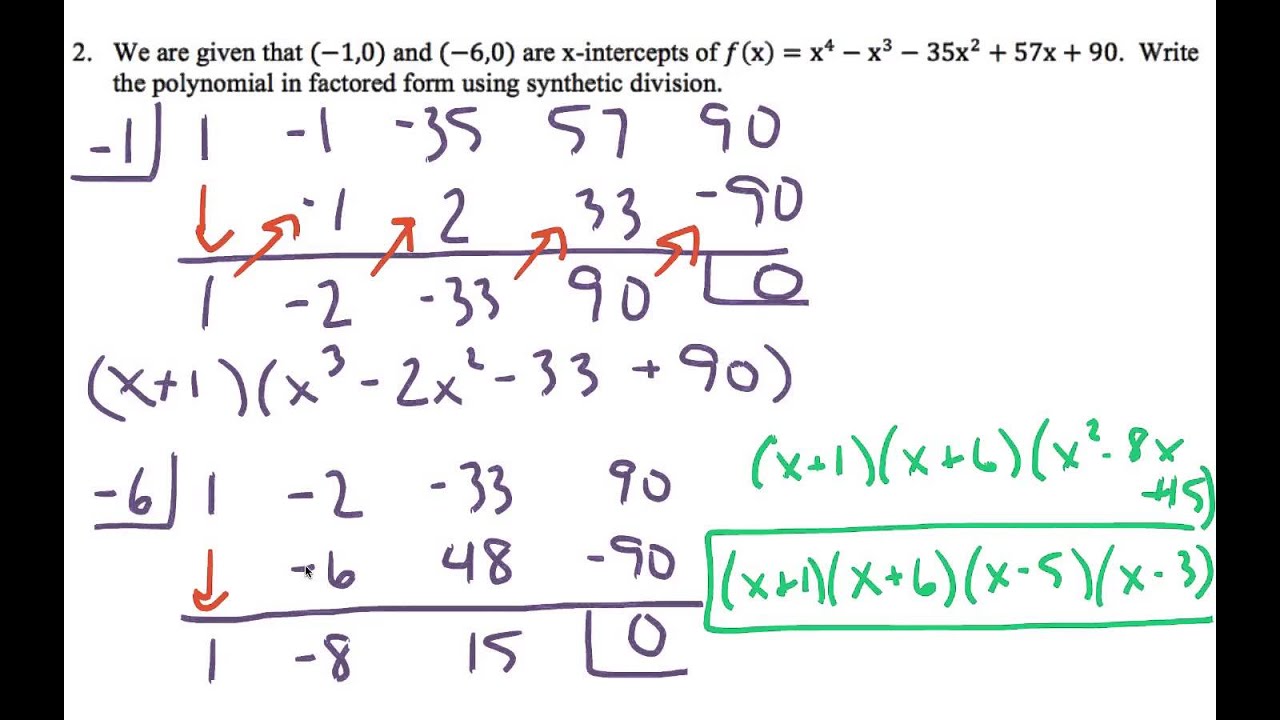 2. We are given that (−1,0) and (−6,0) are x-intercepts of f(x) = x⁴ − x³ − 35x² + 57x + 90. Write
the polynomial in factored form using synthetic division.
-1 1 -1 -35 57 90
-1 2 33 -90
1 -2 -33 90 0
(x+1)(x³-2x²-33+90)
-6 1 -2 -33 90
-6 48 -90
1 -8 15 0
(x+1)(x+6)(x²-8x
+15)
(x+1)(x+6)(x-5)(x-3)